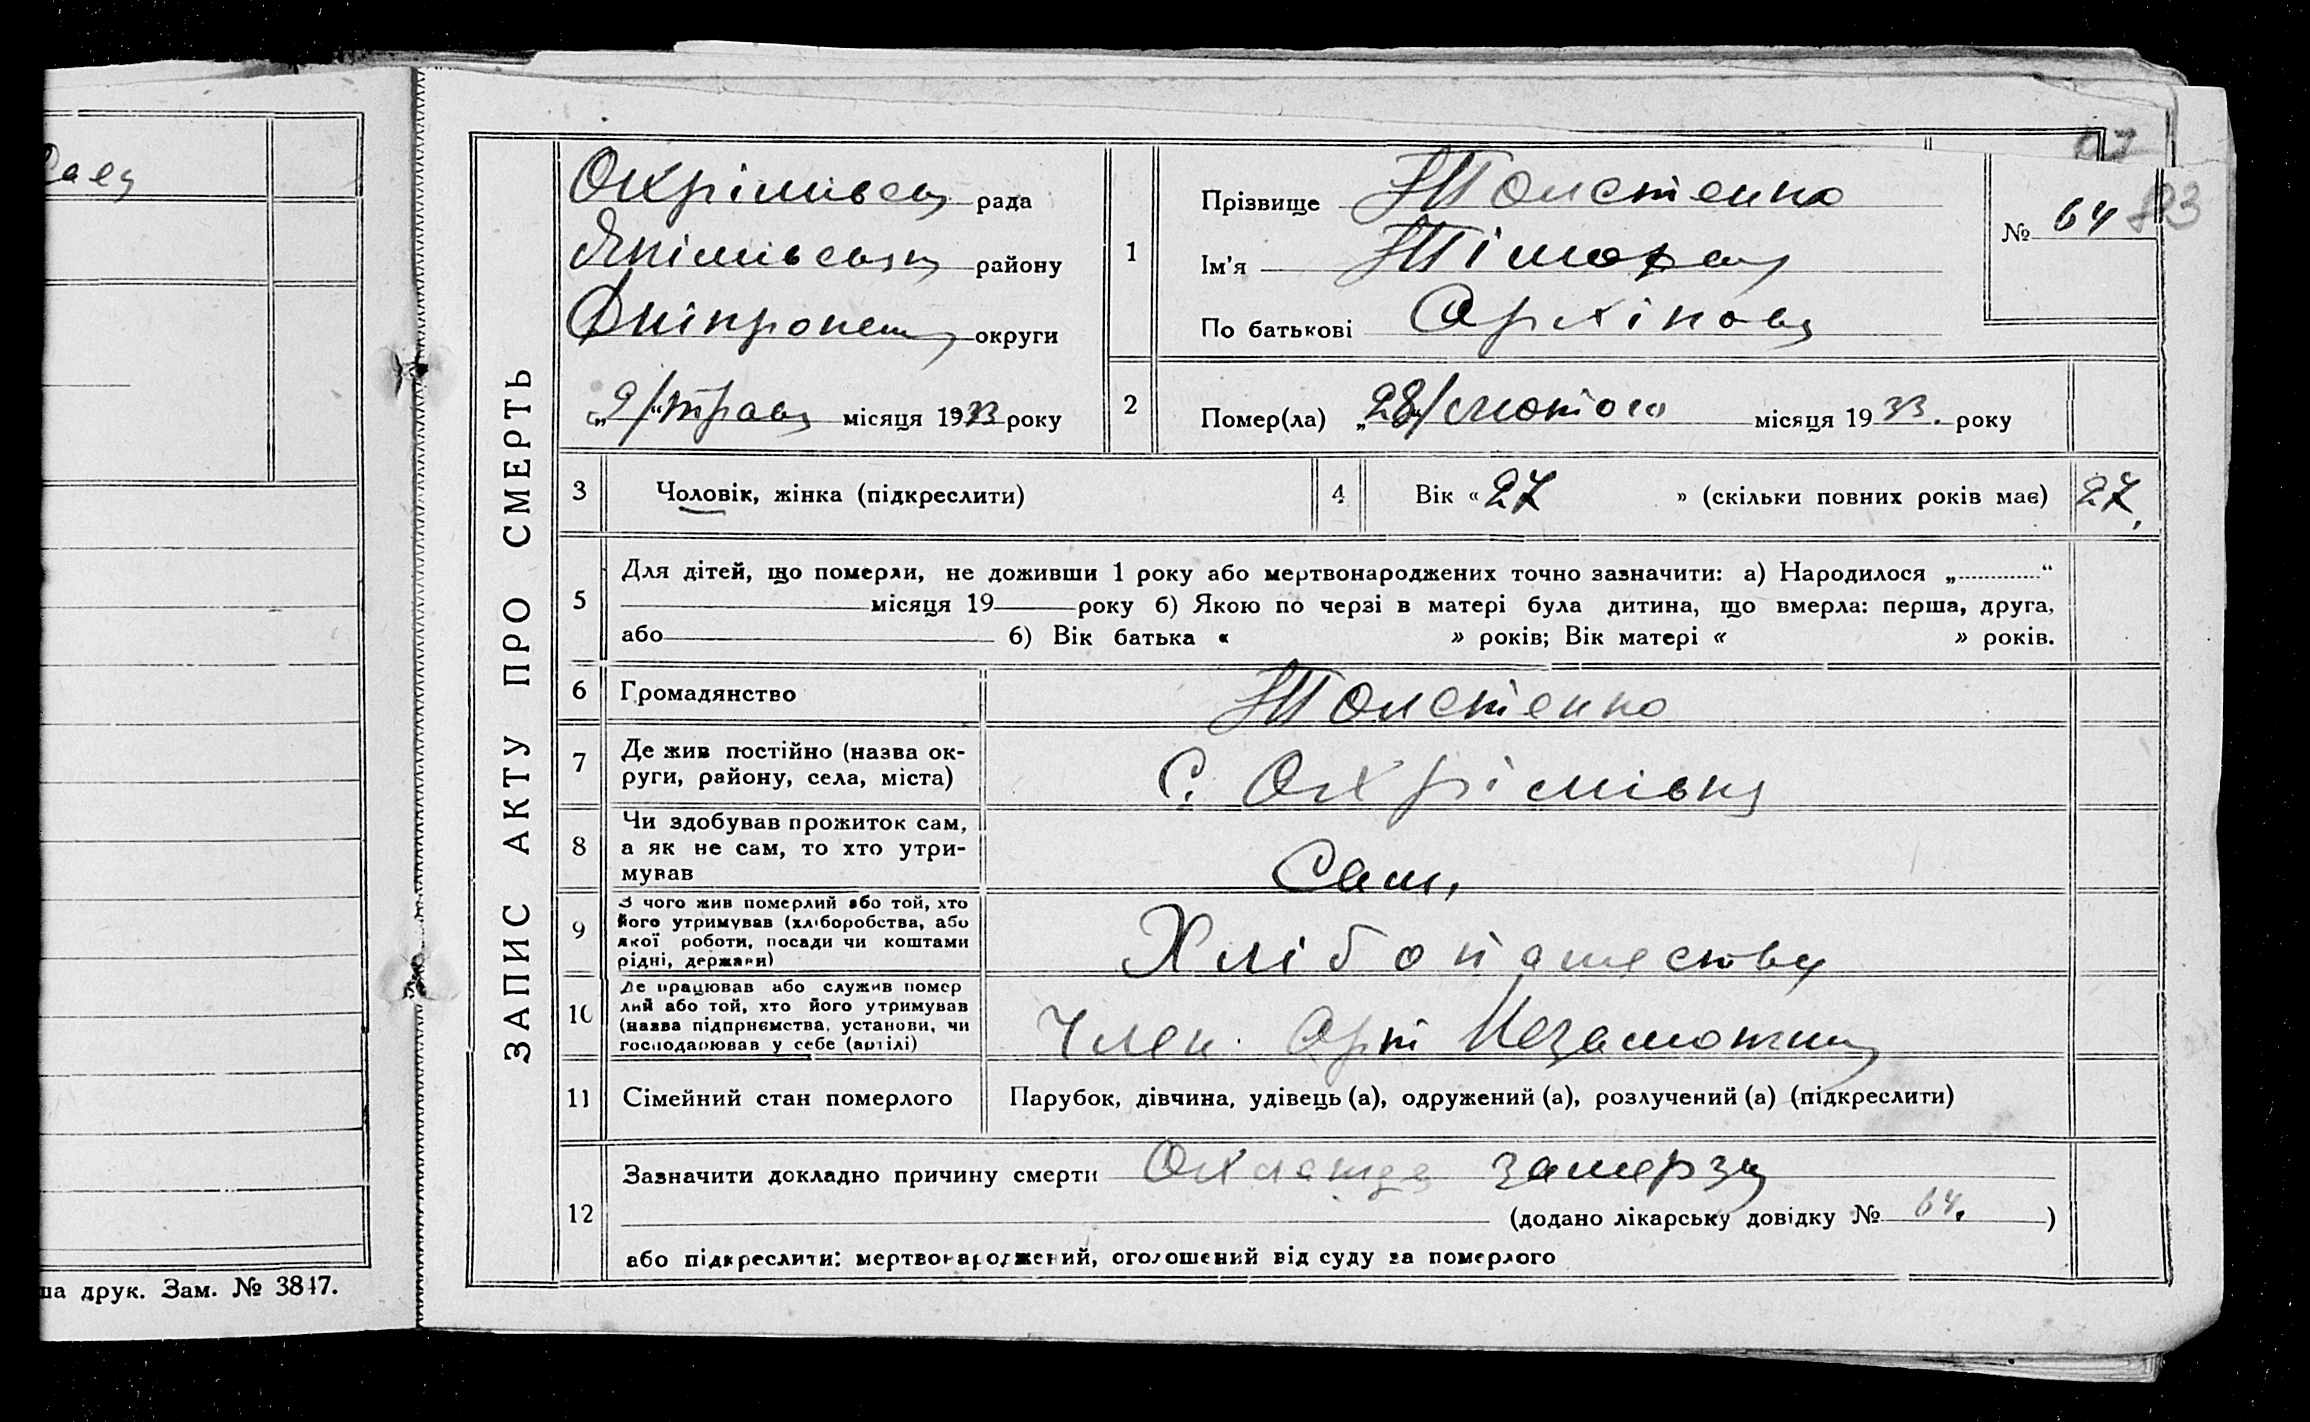 ЗАПИС АКТУ ПРО СМЕРТЬ
Охрімівськ рада
Якимівськ району
Дніпропет округи
„9“ трав місяця 1933 року
1
Прізвище Толстенко
Ім'я
По батькові Архіпов
№ 64
2
Помер(ла) „28“ лютого місяця 1933. року
3 Чоловік, жінка (підкреслити)
4 Вік «27» (скільки повних років має) 27,
5
Для дітей, що померли, не доживши 1 року або мертвонароджених точно зазначити: а) Народилося „ “
місяця 19 року б) Якою по черзі в матері була дитина, що вмерла: перша, друга,
або б) Вік батька « » років; Вік матері « » років.
6 Громадянство Толстенко
7 Де жив постійно (назва ок-
руги, району, села, міста) С. Охрімівка
8 Чи здобував прожиток сам,
а як не сам, то хто утри-
мував Сам,
9 З чого жив померлий або той, хто
його утримував (хліборобства, або
якої роботи, посади чи коштами
рідні, держави)
10 Де працював або служив помер
лий або той, хто його утримував
(назва підприємства, установи, чи
господарював у себе (артілі) Член. Арт Незаможник
11 Сімейний стан померлого Парубок, дівчина, удівець (а), одружений (а), розлучений (а) (підкреслити)
12 Зазначити докладно причину смерти замерз
(додано лікарську довідку № 64. )
або підкреслити: мертвонароджений, оголошений від суду за померлого
друк. Зам. № 3847.